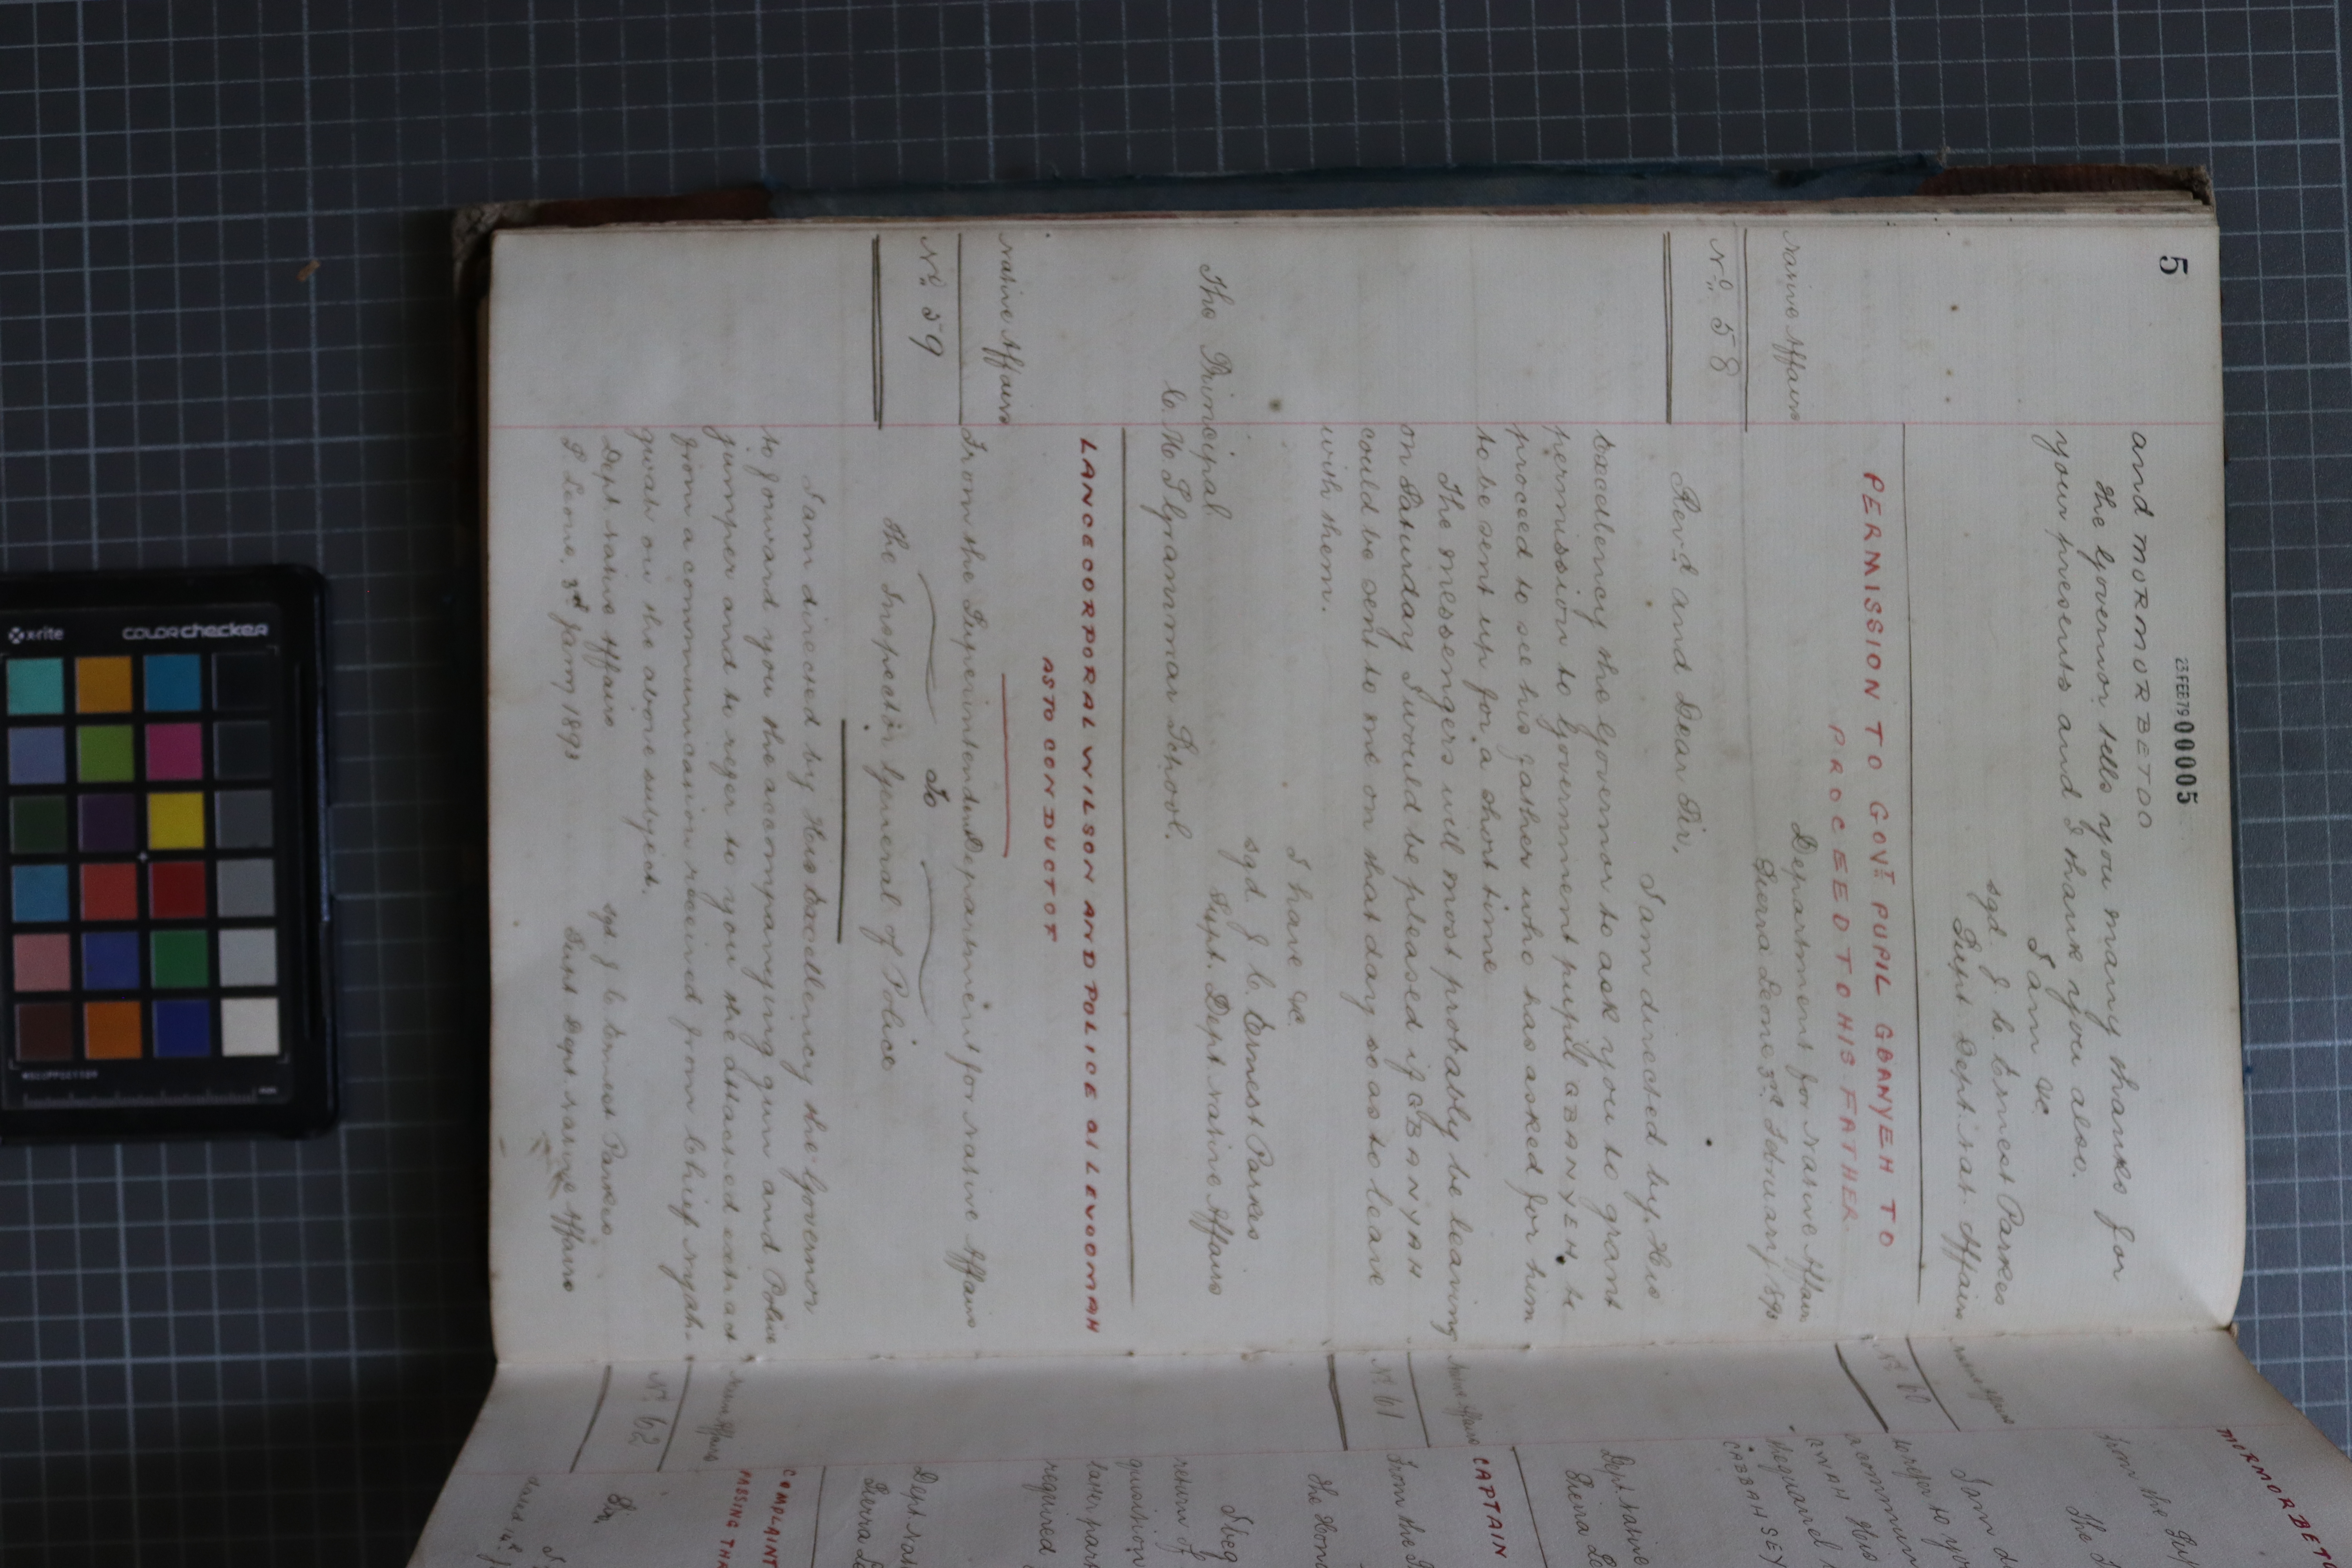 5
23 FEB 79 00005
and MORMOR BETOO
the Governor tells you many thanks for
your presents and I thank you also.
I am &c
sgd. J. C. Ernest Parkes
Supt. Dept. Nat. Affairs
PERMISSION TO GOVT PUPIL GBANYEH TO
PROCEED TO HIS FATHER.
Native Affairs
No. 58
Department for Native Affairs
Sierra Leone 3rd February 1893
Revd and Dear Sir,
I am directed by His
Excellency the Governor to ask you to grant
permission to Government pupil GBANYEH, to
proceed to see his father who has asked for him
to be sent up for a short time
The messengers will most probably be leaving
on Saturday I would be pleased if GBANYAH
could be sent to me on that day so as to leave
with them.
I have &c
sgd. J. C. Ernest Parkes
Supt. Dept. Native Affairs
The Principal
C. M. S. Grammar School.
LANCE CORPORAL WILSON AND POLICE at LEVOOMAH
AS TO CONDUCT OF
Native Affairs
No. 59
From the Superintendent Department for Native Affairs
To
The Inspector General of Police
I am directed by His Excellency the Governor
to forward you the accompanying gun and Police
jumper and to refer to you the attached extract
from a communication received from Chief Nyah-
gwah on the above subject.
Dept. Native Affairs
S Leone, 3rd Jany 1893
sgd J C Ernest Parkes
Supt Dept. Native Affairs
MORMOR BET
From the Su
The
I am d
to refer to yo
a commun
GWAH
CABBAH SEY
Native Affairs
No. 60
Dept Native
Sierra Le
CAPTAIN
Native Affairs
No. 61
From the
The Hon
I beg
return of
question
required
Dept Nat
Sierra Le
COMPLAINT
PASSING THA
Native Affairs
No. 62
Sir,